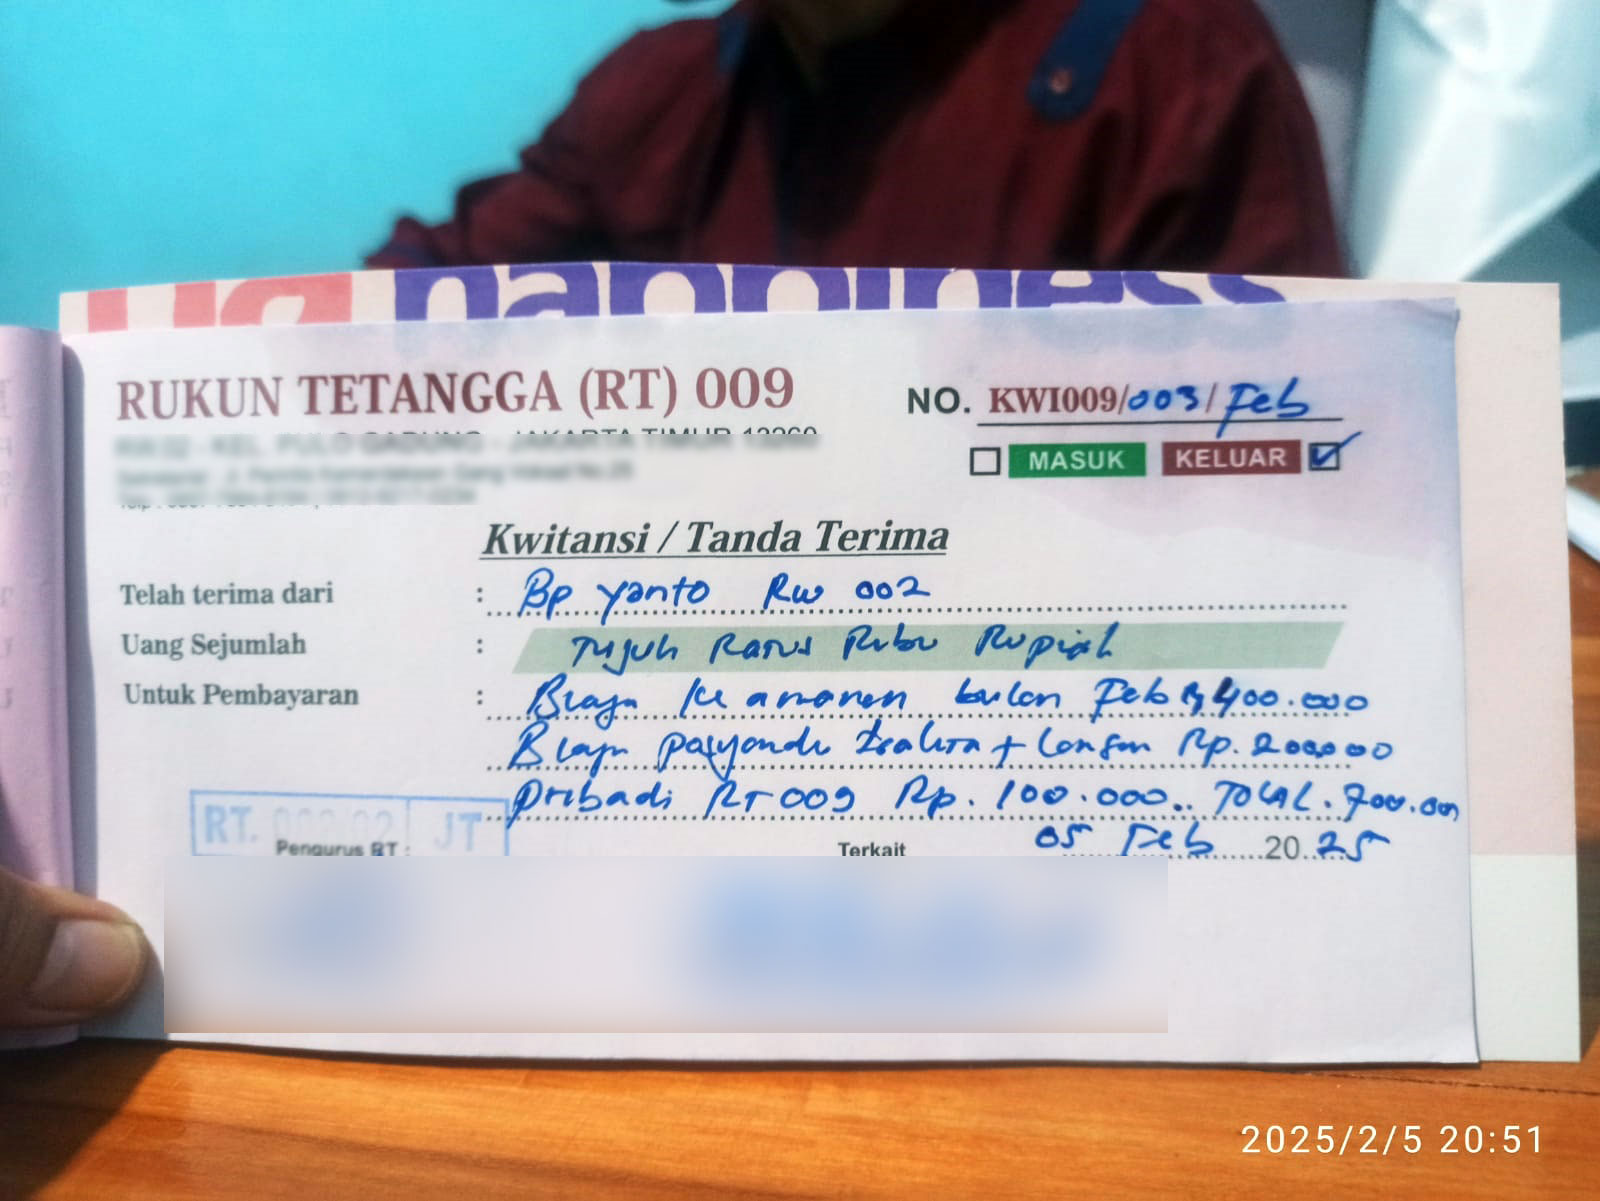 happiness
RUKUN TETANGGA (RT) 009
NO. KWI009/003/Feb
MASUK KELUAR
Kwitansi / Tanda Terima
Telah terima dari : Bp Yanto RW 002
Uang Sejumlah : Tujuh Ratus Ribu Rupiah
Untuk Pembayaran : Biaya Keamanan bulan Feb Rp 400.000
Biaya posyandu + Rp. 200.000
Pribadi RT 009 Rp. 100.000.. TOTAL. 700.000
RT. JT
Pengurus RT :
Terkait
05 Feb 2025
2025/2/5 20:51